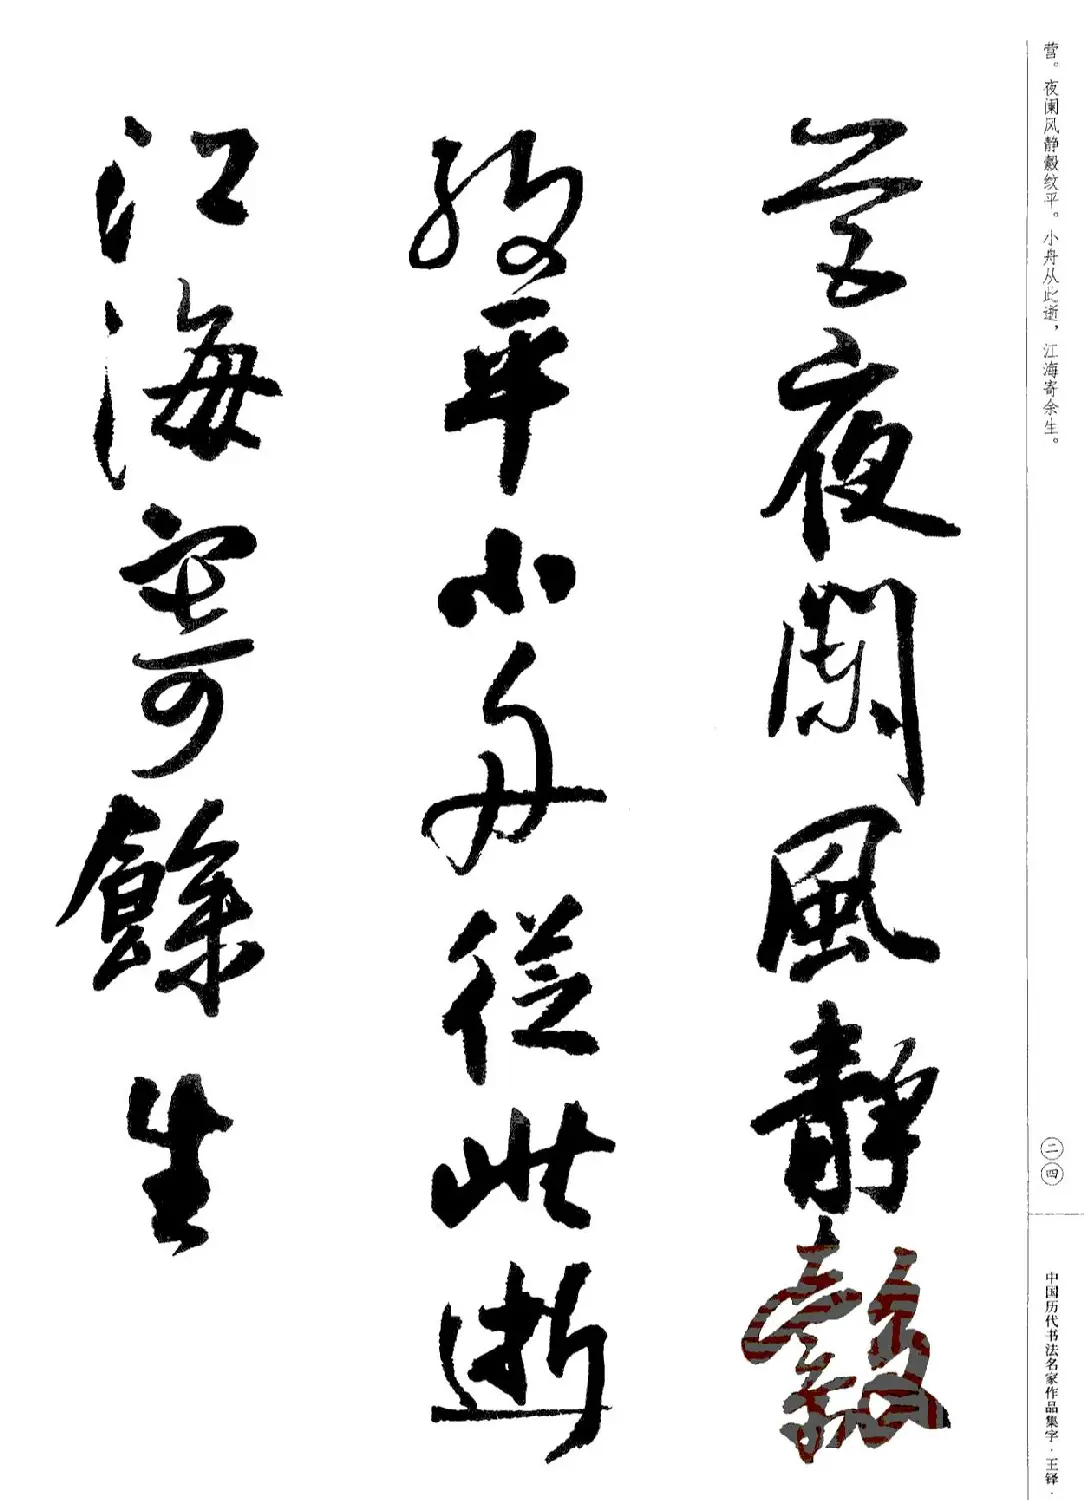 营。夜阑风静縠纹平。小舟从此逝，江海寄余生。
營夜闌風靜縠
紋平小舟從此逝
江海寄餘生
二四
中国历代书法名家作品集字·王铎·